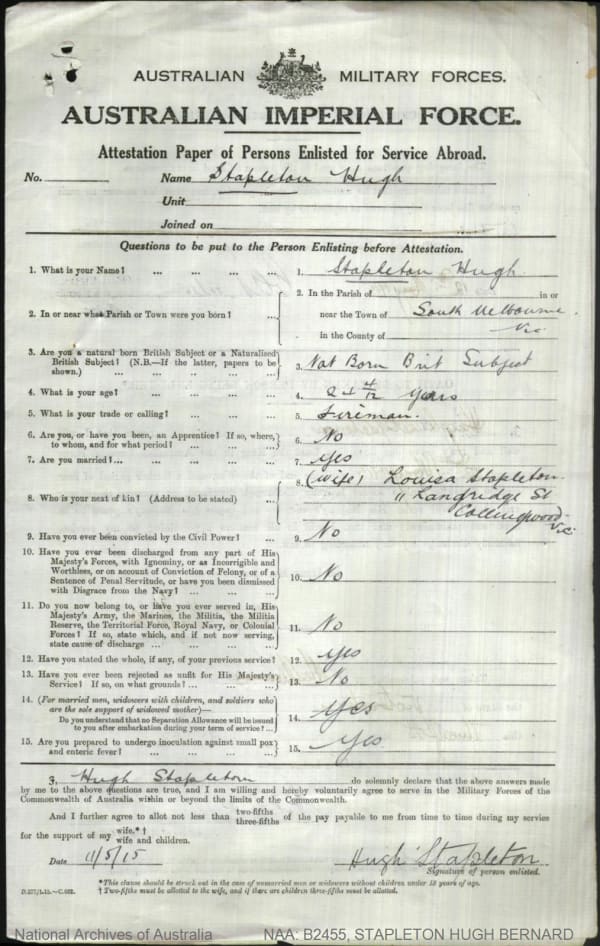 AUSTRALIAN MILITARY FORCES.
AUSTRALIAN IMPERIAL FORCE.
Attestation Paper of Persons Enlisted for Service Abroad.
No. Name Stapleton Hugh
Unit
Joined on
Questions to be put to the Person Enlisting before Attestation.
1. What is your Name? ... ... ... ... 1. Stapleton Hugh
2. In or near what Parish or Town were you born? ... 2. In the Parish of in or
near the Town of South Melbourne
in the County of Vic.
3. Are you a natural born British Subject or a Naturalised
British Subject? (N.B.—If the latter, papers to be
shown.) ... ... ... ... 3. Nat Born Brit Subject
4. What is your age? ... ... ... ... 4. 4/12 years
5. What is your trade or calling? ... ... ... 5. Fireman.
6. Are you, or have you been, an Apprentice? If so, where,
to whom, and for what period? ... ... ... 6. No
7. Are you married? ... ... ... ... 7. Yes
8. Who is your next of kin? (Address to be stated) ... 8. (wife) Louisa Stapleton
11 Langridge St
Collingwood
Vic.
9. Have you ever been convicted by the Civil Power? ... 9. No
10. Have you ever been discharged from any part of His
Majesty's Forces, with Ignominy, or as Incorrigible and
Worthless, or on account of Conviction of Felony, or of a
Sentence of Penal Servitude, or have you been dismissed
with Disgrace from the Navy? ... ... ... 10. No
11. Do you now belong to, or have you ever served in, His
Majesty's Army, the Marines, the Militia, the Militia
Reserve, the Territorial Force, Royal Navy, or Colonial
Forces? If so, state which, and if not now serving,
state cause of discharge ... ... ... ... 11. No
12. Have you stated the whole, if any, of your previous service? 12. Yes
13. Have you ever been rejected as unfit for His Majesty's
Service? If so, on what grounds? ... ... ... 13. No
14. (For married men, widowers with children, and soldiers who
are the sole support of widowed mother)—
Do you understand that no Separation Allowance will be issued
to you after embarkation during your term of service? ... 14. Yes
15. Are you prepared to undergo inoculation against small pox
and enteric fever? ... ... ... ... 15. Yes
I, Hugh Stapleton do solemnly declare that the above answers made
by me to the above questions are true, and I am willing and hereby voluntarily agree to serve in the Military Forces of the
Commonwealth of Australia within or beyond the limits of the Commonwealth.
And I further agree to allot not less than two-fifths three-fifths of the pay payable to me from time to time during my service
for the support of my wife.*† wife and children.
Date 11/5/15 Hugh Stapleton
Signature of person enlisted.
*This clause should be struck out in the case of unmarried men or widowers without children under 18 years of age.
† Two-fifths must be allotted to the wife, and if there are children three-fifths must be allotted.
National Archives of Australia NAA: B2455, STAPLETON HUGH BERNARD